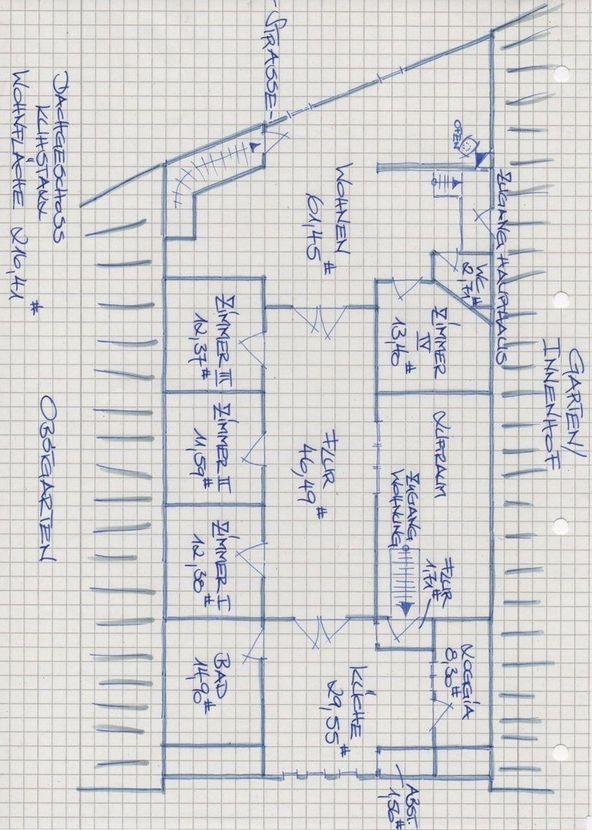 DACHGESCHOSS
KUHSTALL
WOHNFLÄCHE 216,41 #
-STRASSE-
OBSTGARTEN
GARTEN/
INNENHOF
ZUGANG HAUPTHAUS
OFEN
WOHNEN
61,45 #
WC
2,71 #
ZIMMER
IV
13,40 #
ZIMMER III
12,37 #
ZIMMER II
11,59 #
ZIMMER I
12,38 #
FLUR
46,49 #
LUFTRAUM
ZUGANG
WOHNUNG
FLUR
1,71 #
LOGGIA
8,30 #
BAD
14,90 #
KÜCHE
29,55 #
ABST.
1,56 #